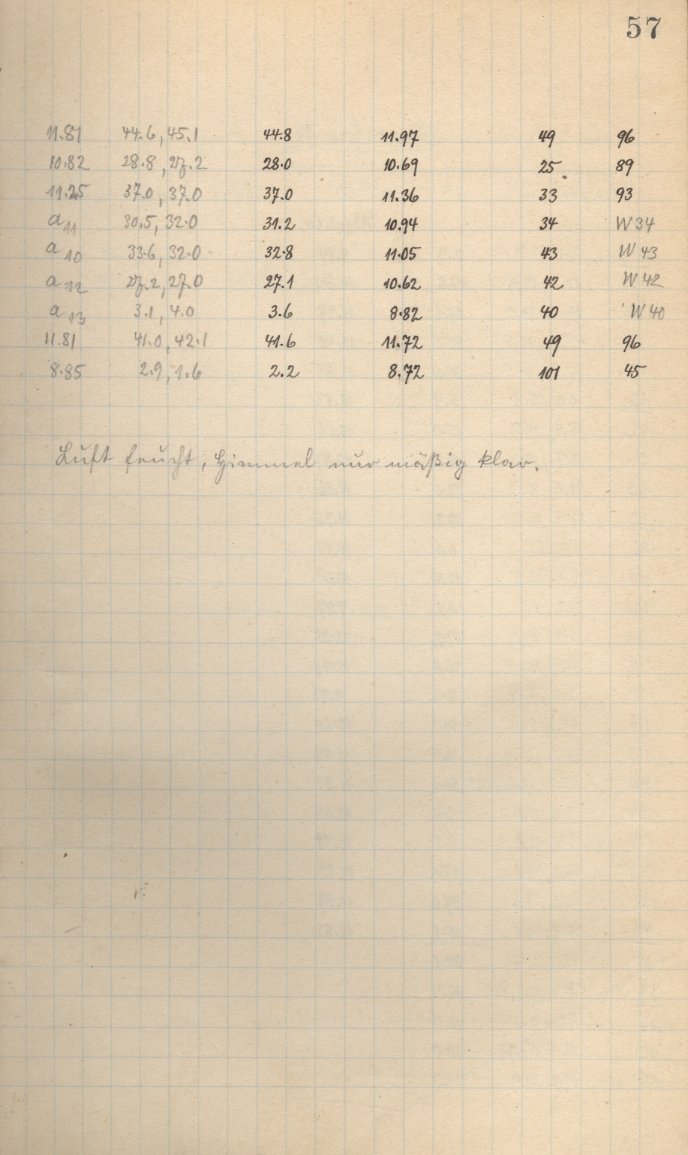 57
11.81 44.6, 45.1 44.8 11.97 49 96
10.82 28.8, 27.2 28.0 10.69 25 89
11.25 37.0, 37.0 37.0 11.36 33 93
a 11 30.5, 32.0 31.2 10.94 34 W 34
a 10 33.6, 32.0 32.8 11.05 43 W 43
a 12 27.2, 27.0 27.1 10.62 42 W 42
a 13 3.1, 4.0 3.6 8.82 40 W 40
11.81 41.0, 42.1 41.6 11.72 49 96
8.85 2.9, 1.6 2.2 8.72 101 45
Luft feucht, Himmel nur mäßig klar.